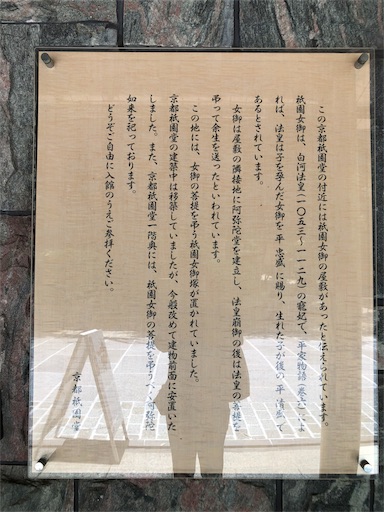 この京都祇園堂の付近には祇園女御の屋敷があったと伝えられています。
祇園女御は、白河法皇(一〇五三〜一一二九)の寵妃で、平家物語(巻六)によ
れば、法皇は子を孕んだ女御を平忠盛に賜り、生れた子が後の平清盛で
あるとされています。
女御は屋敷の隣接地に阿弥陀堂を建立し、法皇崩御の後は法皇の菩提を
弔って余生を送ったといわれています。
この地には、女御の菩提を弔う祇園女御塚が置かれていました。
京都祇園堂の建築中は移築していましたが、今般改めて建物前面に安置いた
しました。また、京都祇園堂一階奥には、祇園女御の菩提を弔うべく阿弥陀
如来を祀っております。
どうぞご自由に入館のうえご参拝ください。
京都祇園堂